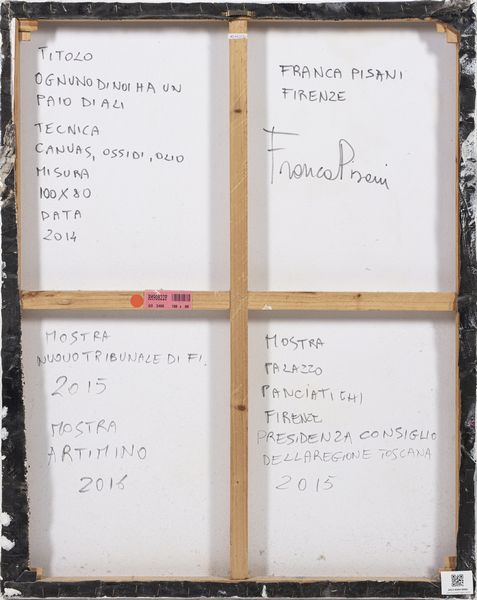 TITOLO
OGNUNO DI NOI HA UN
PAIO DI ALI
TECNICA
CANVAS, OSSIDI, OLIO
MISURA
100 X 80
DATA
2014
FRANCA PISANI
FIRENZE
Franca Pisani
MOSTRA
NUOVO TRIBUNALE DI FI.
2015
MOSTRA
ARTIMINO
2016
MOSTRA
PALAZZO
PANCIATICHI
FIRENZE
PRESIDENZA CONSIGLIO
DELLA REGIONE TOSCANA
2015